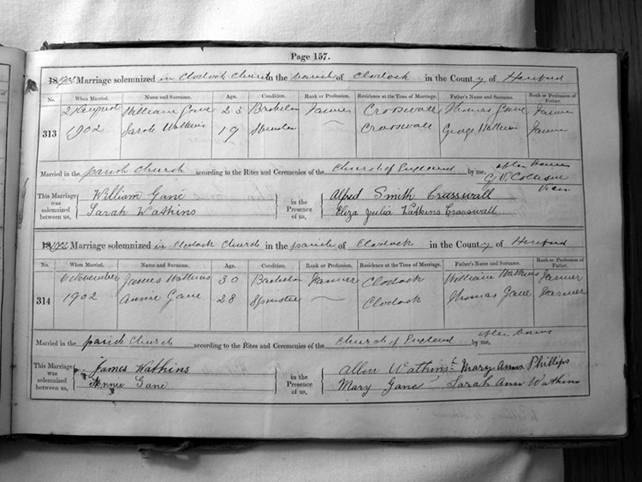 Page 157.
1902 Marriage solemnized in Clodock Church in the parish of Clodock in the County of Hereford
No. When Married. Name and Surname. Age. Condition. Rank or Profession. Residence at the Time of Marriage. Father's Name and Surname. Rank or Profession of Father.
313 2 August William Gane 23 Bachelor Farmer Crasswall Thomas Gane Farmer
1902 Sarah Watkins 19 Spinster Crasswall George Watkins Farmer
Married in the parish church according to the Rites and Ceremonies of the Church of England by me, after banns
Vicar
This Marriage was solemnized between us, William Gane Sarah Watkins in the Presence of us, Alfred Smith Crasswall
Eliza Julia Watkins Crasswall
1902 Marriage solemnized in Clodock Church in the parish of Clodock in the County of Hereford
No. When Married. Name and Surname. Age. Condition. Rank or Profession. Residence at the Time of Marriage. Father's Name and Surname. Rank or Profession of Father.
314 November James Watkins 30 Bachelor Farmer Clodock William Watkins Farmer
1902 Annie Gane 28 Spinster Clodock Thomas Gane Farmer
Married in the parish church according to the Rites and Ceremonies of the Church of England by me, after banns
This Marriage was solemnized between us, James Watkins Annie Gane in the Presence of us, Allen Watkins Mary Anna Phillips
Mary Gane Sarah Ann Watkins